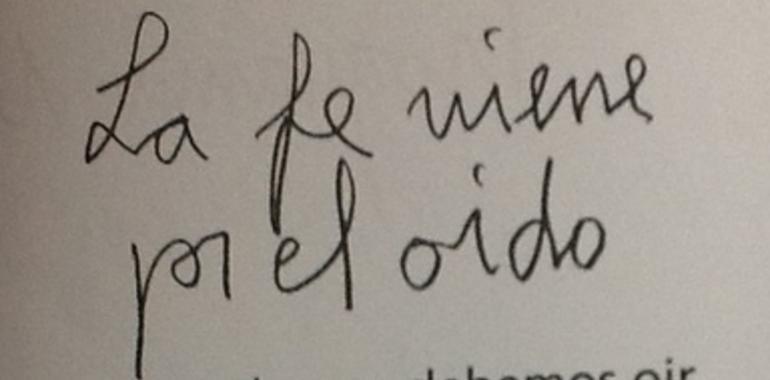 La fe viene
pr el oido
debemos oir